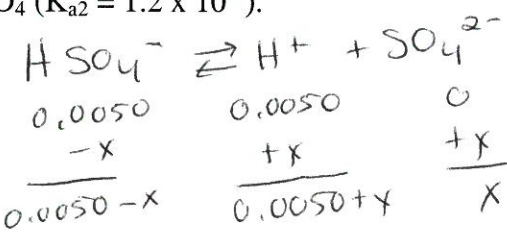 O₄ (Kₐ₂ = 1.2 x 10 ).
H SO₄⁻ ⇌ H⁺ + SO₄²⁻
0.0050 0.0050 0
-x +x +x
0.0050-x 0.0050+x x